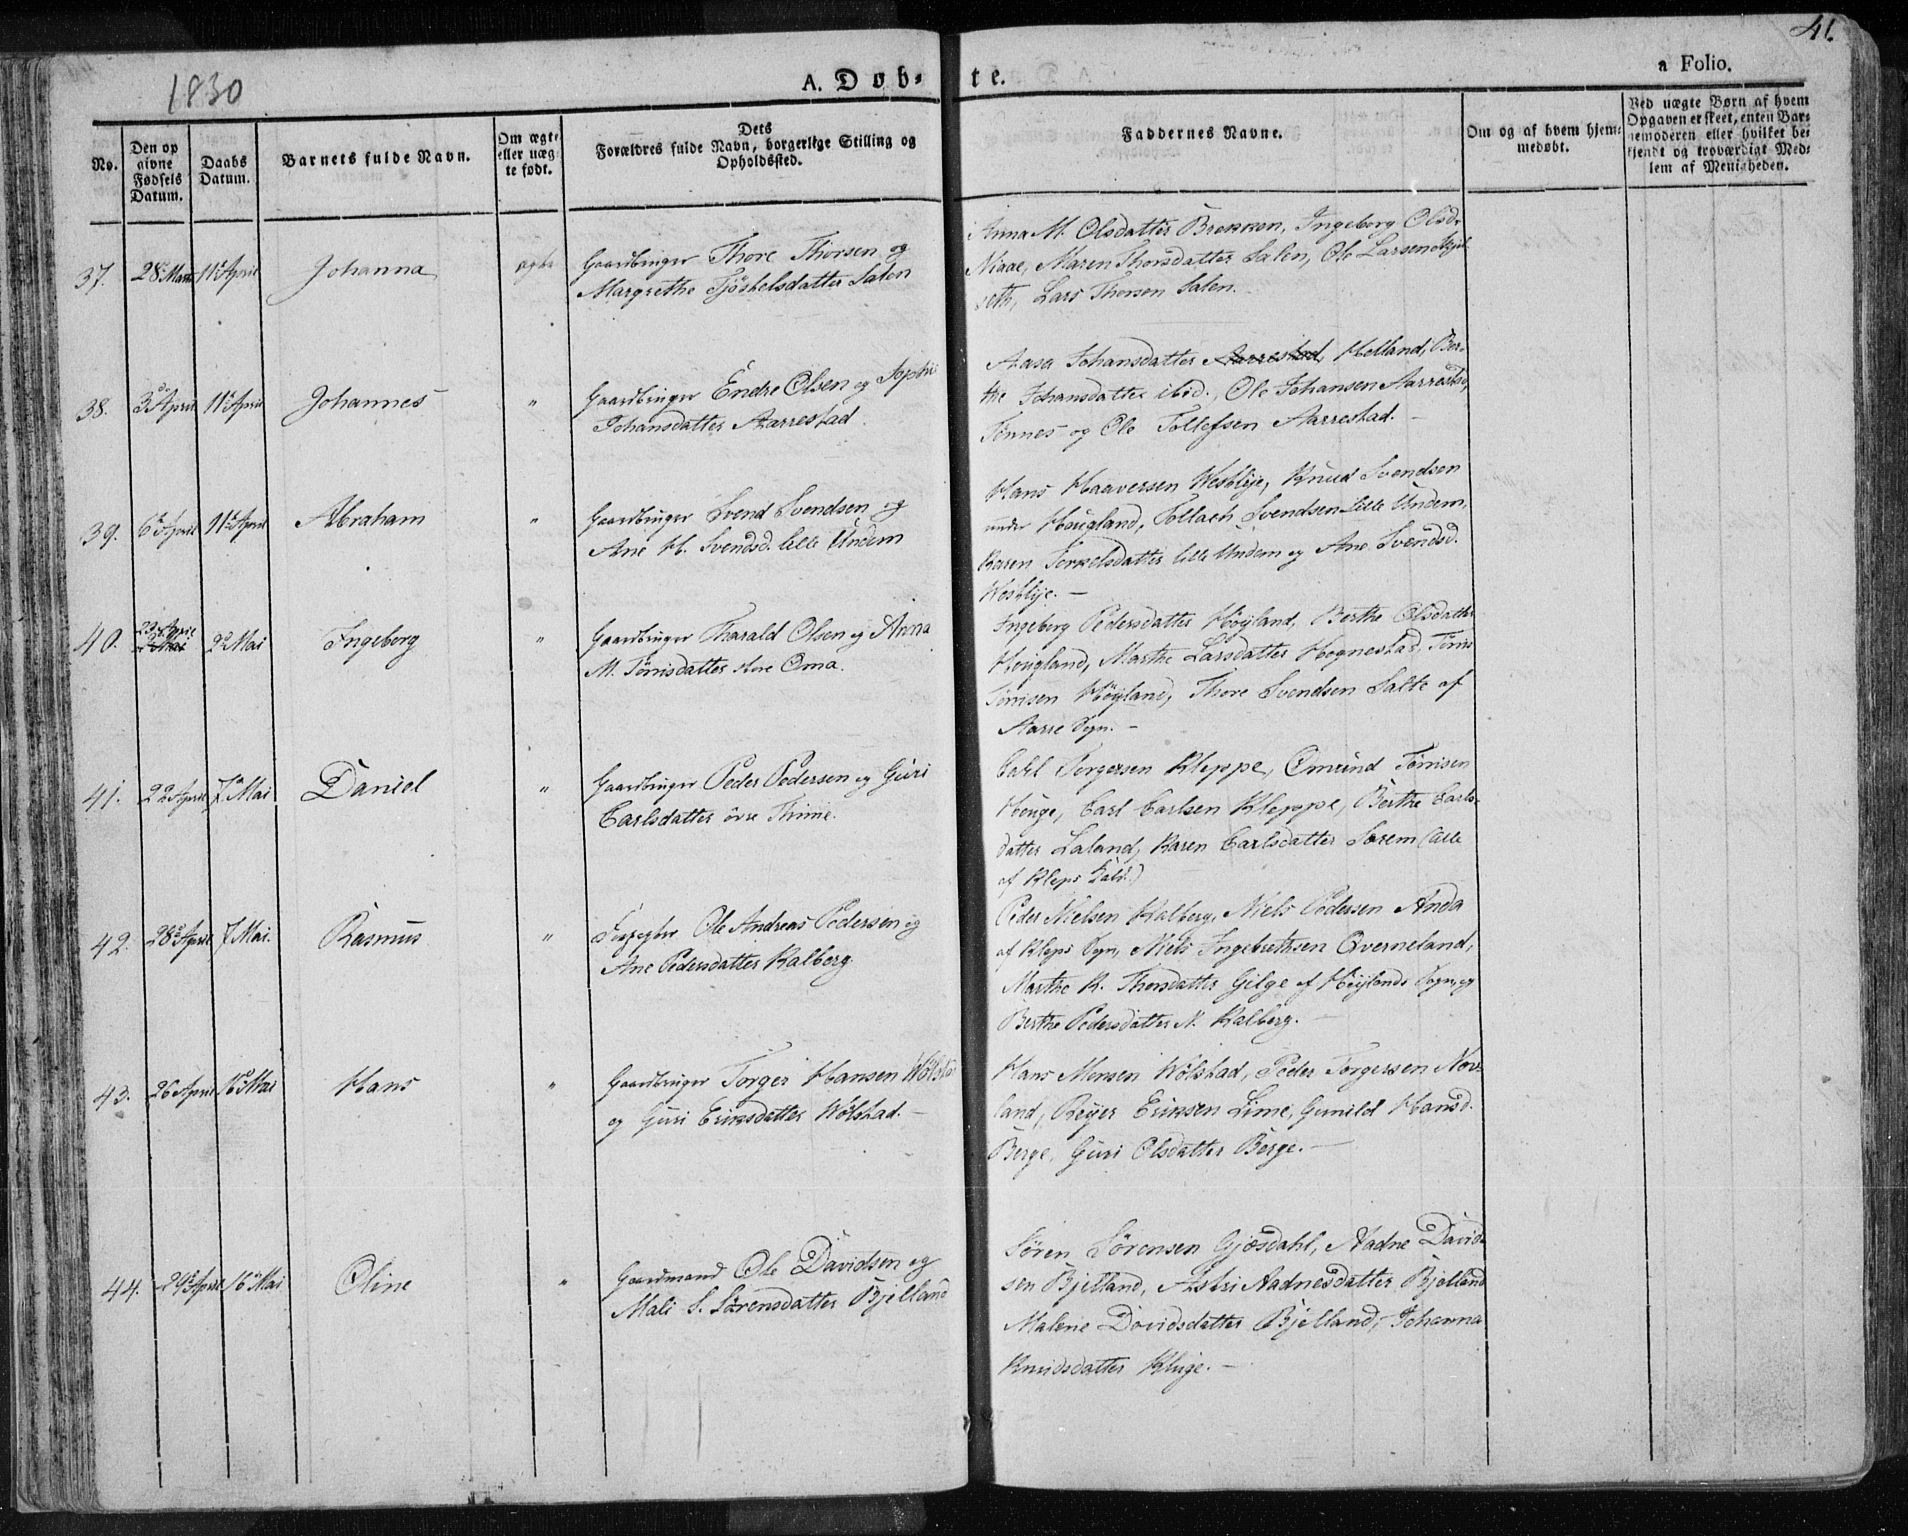 1830
41.
A. Døb-te.
a Folio.
No.
Den op
givne
Fødsels
Datum.
Daabs
Datum.
Barnets fulde Navn.
Om ægte
eller uæg-
te født.
Dets
Forældres fulde Navn, borgerlige Stilling og
Opholdssted.
Faddernes Navne.
Om og af hvem hjem-
medøbt.
Ved uægte Børn af hvem
Opgaven er skeet, enten Bar-
nemoderen eller hvilket be-
kjendt og troværdigt Med-
lem af Menigheden.
37. 28 Marts 11 April Johanna ægte
Gaardbruger Thore Thorsen og
Margrethe Tjöstelsdatter Salen
Anna M. Olsdatter Brekken, Ingeborg Olsd.
Niaae, Maren Thorsdatter Salen, Ole Larsen
seth, Lars Thorsen Salen.
38. 3 April 11 April Johannes "
Gaardbruger Endre Olsen og Sophie
Johansdatter Aarrestad.
Aasa Johansdatter Aarrestad, Helland, Ber-
the Johansdatter ibid., Ole Johansen Aarrestad,
Tönnes og Ole Tollefsen Aarrestad. -
39. 6 April 11 April Abraham "
Gaardbruger Svend Svendsen og
Ane H. Svendsd. lille Undem
Hans Haaversen Westlye, Knud Svendsen
under Hougland, Tollach Svendsen Lille Undem,
Karen Torkelsdatter lille Undem og Ane Svendsd.
Westlye. -
40. 22 April 2 Mai 2 Mai Ingeborg "
Gaardbruger Tharald Olsen og Anna
M. Tönnisdatter store Oma.
Ingeborg Pedersdatter Höyland, Berthe Olsdatter
Hougland, Marthe Larsdatter Hognestad, Tönis
Tönisen Höyland, Thore Svendsen Salte af
Aarre Sogn. -
41. 22 April 7 Mai Daniel "
Gaardbruger Peder Pedersen og Guri
Carlsdatter övre Thime.
Torgersen Kleppe, Omund Tönisen
Houge, Carl Carlsen Kleppe, Berthe Carls-
datter Laland, Karen Carlsdatter Sorem (alle
af Kleps Gald.)
42. 28 April 7 Mai. Rasmus "
Ole Andreas Pedersen og
Ane Pedersdatter Kalberg.
Peder Nielsen Kalberg, Niels Pedersen Anda
af Kleps Sogn, Niels Ingebrethsen Qverneland,
Marthe K. Thorsdatter Gilge af Höylands Sogn, og
Berthe Pedersdatter N. Kalberg. -
43. 26 April 16 Mai Hans "
Gaardbruger Torger Hansen Wölstad
og Guri Eriksdatter Wölstad. -
Hans Monsen Wölstad, Peder Torgersen Nor-
land, Reyer Eriksen Lime, Gunild Hansd.
Berge, Guri Olsdatter Berge. -
44. 29 April 16 Mai Oline "
Gaardmand Ole Davidsen og
Mali S. Sörensdatter Bjelland
Sören Sörensen Gjæsdahl, Aadne David-
sen Bjelland, Astri Aadnesdatter Bjelland
Malene Davidsdatter Bjelland, Johanna
Knudsdatter Kluge. -